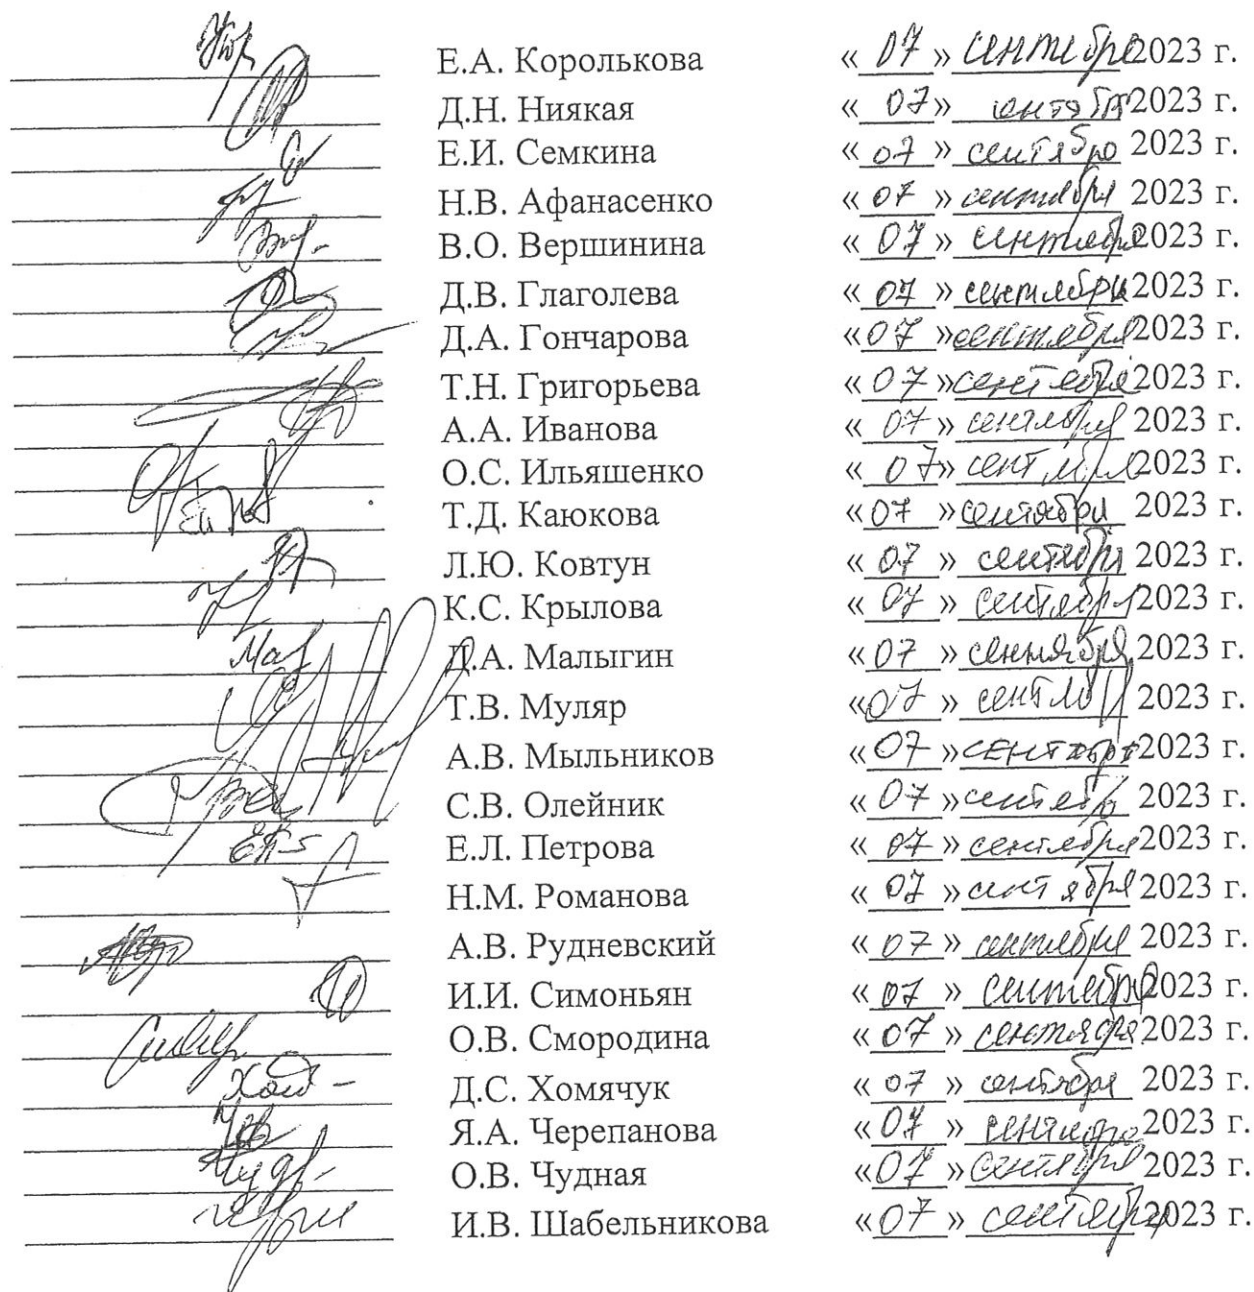 Е.А. Королькова «07» сентября 2023 г.
Д.Н. Ниякая «07» сентября 2023 г.
Е.И. Семкина «07» сентября 2023 г.
Н.В. Афанасенко «07» сентября 2023 г.
В.О. Вершинина «07» сентября 2023 г.
Д.В. Глаголева «07» сентября 2023 г.
Д.А. Гончарова «07» сентября 2023 г.
Т.Н. Григорьева «07» сентября 2023 г.
А.А. Иванова «07» сентября 2023 г.
О.С. Ильяшенко «07» сентября 2023 г.
Т.Д. Каюкова «07» сентября 2023 г.
Л.Ю. Ковтун «07» сентября 2023 г.
К.С. Крылова «07» сентября 2023 г.
Д.А. Малыгин «07» сентября 2023 г.
Т.В. Муляр «07» сентября 2023 г.
А.В. Мыльников «07» сентября 2023 г.
С.В. Олейник «07» сентября 2023 г.
Е.Л. Петрова «07» сентября 2023 г.
Н.М. Романова «07» сентября 2023 г.
А.В. Рудневский «07» сентября 2023 г.
И.И. Симоньян «07» сентября 2023 г.
О.В. Смородина «07» сентября 2023 г.
Д.С. Хомячук «07» сентября 2023 г.
Я.А. Черепанова «07» сентября 2023 г.
О.В. Чудная «07» сентября 2023 г.
И.В. Шабельникова «07» сентября 2023 г.